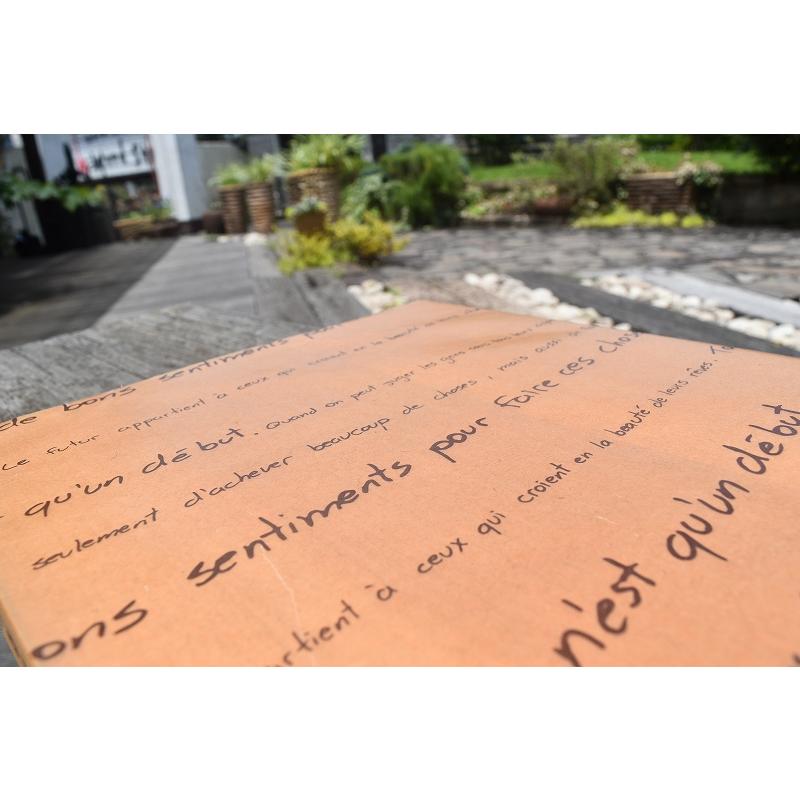 de bons sentiments
Le futur appartient à ceux qui croient en la beauté
qu'un début. Quand on peut juger les gens sans
seulement d'achever beaucoup de choses, mais aussi
ons sentiments pour faire ces
rtient à ceux qui croient en la beauté de leurs rêves.
n'est qu'un début